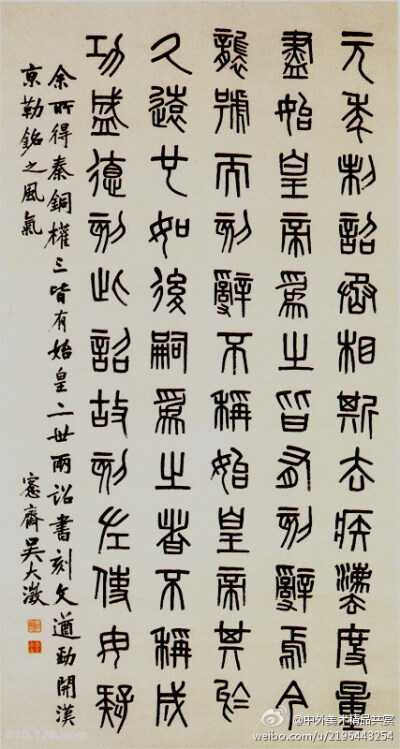 元年制詔丞相斯去疾灋度量
盡始皇帝爲之皆有刻辭焉今
襲號而刻辭不稱始皇帝其於
久遠也如後嗣爲之者不稱成
功盛德刻此詔故刻左使毋疑
余所得秦銅權三皆有始皇二世兩詔書刻文遒勁開漢
京勒銘之風氣
愙齋吳大澂
@中外美术精品共赏
weibo.com/u/2196443254